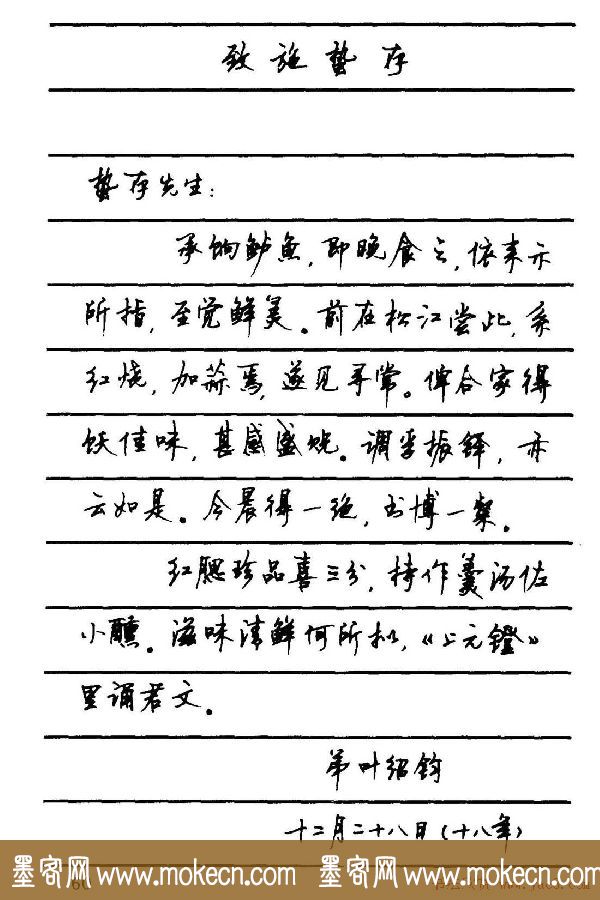 致施蛰存
蛰存先生：
承饷鲈鱼，即晚食之，依来示
所指，至觉鲜美。前在松江尝此，系
红烧，加蒜焉，遂见寻常。俾合家得
饫佳味，甚感盛贶。调孚振铎，亦
云如是。今晨得一绝，书博一粲。
红腮珍品喜三分，持作羹汤佐
小醺。滋味清鲜何所拟，《上元镫》
里诵君文。
弟叶绍钧
十二月二十八日（十八年）
墨客网 www.mokecn.com 墨客网 www.mokecn.com